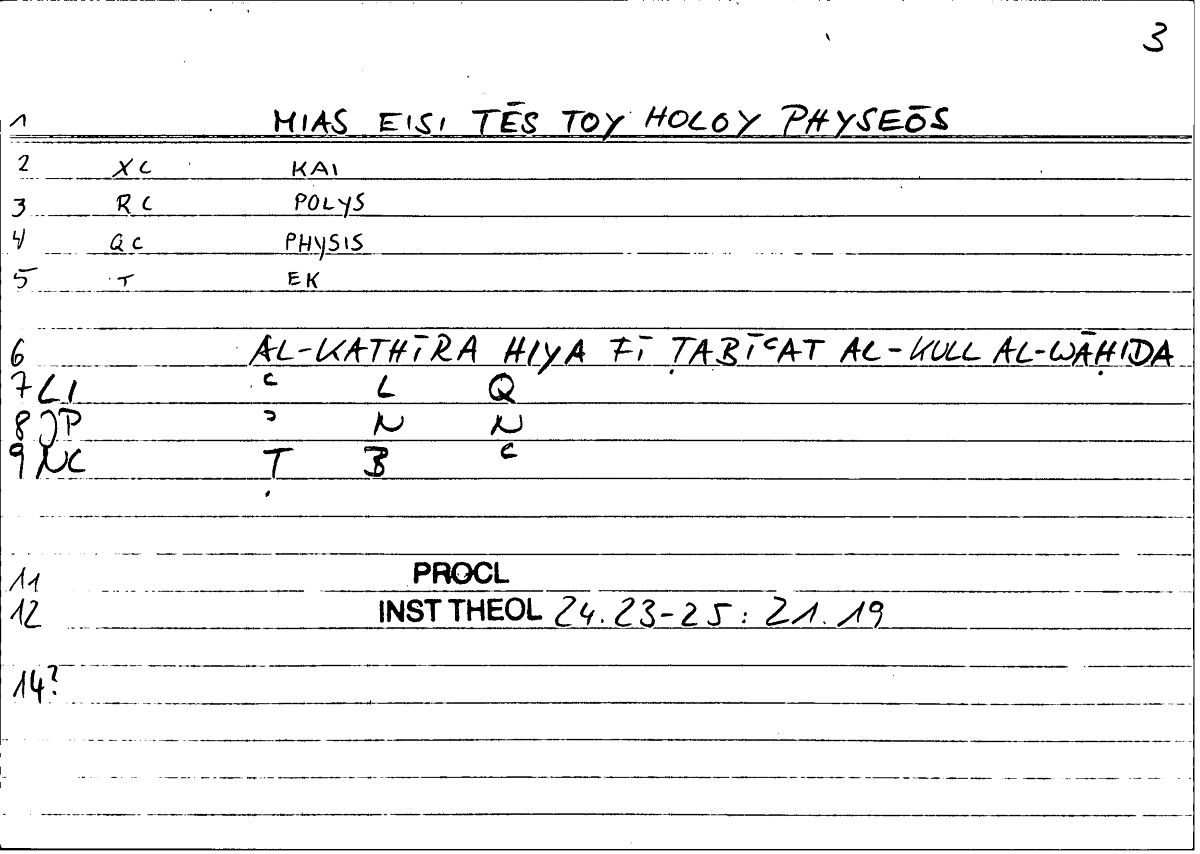 3
1 MIAS EISI TĒS TOY HOLOY PHYSEŌS
2 XC KAI
3 RC POLYS
4 QC PHYSIS
5 T EK
6 AL-KATHĪRA HIYA FĪ ṬABĪᶜAT AL-KULL AL-WĀḤIDA
7 LI ᶜ L Q
8 JP ᵓ N N
9 NC Ṭ B ᶜ
11 PROCL
12 INST THEOL 24.23-25: 21.19
14?